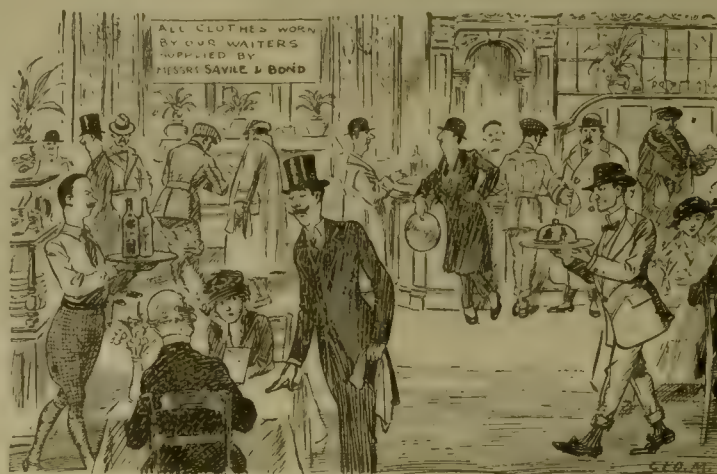 ALL CLOTHES WORN
BY OUR WAITERS
SUPPLIED BY
MESSRS SAVILE & BOND